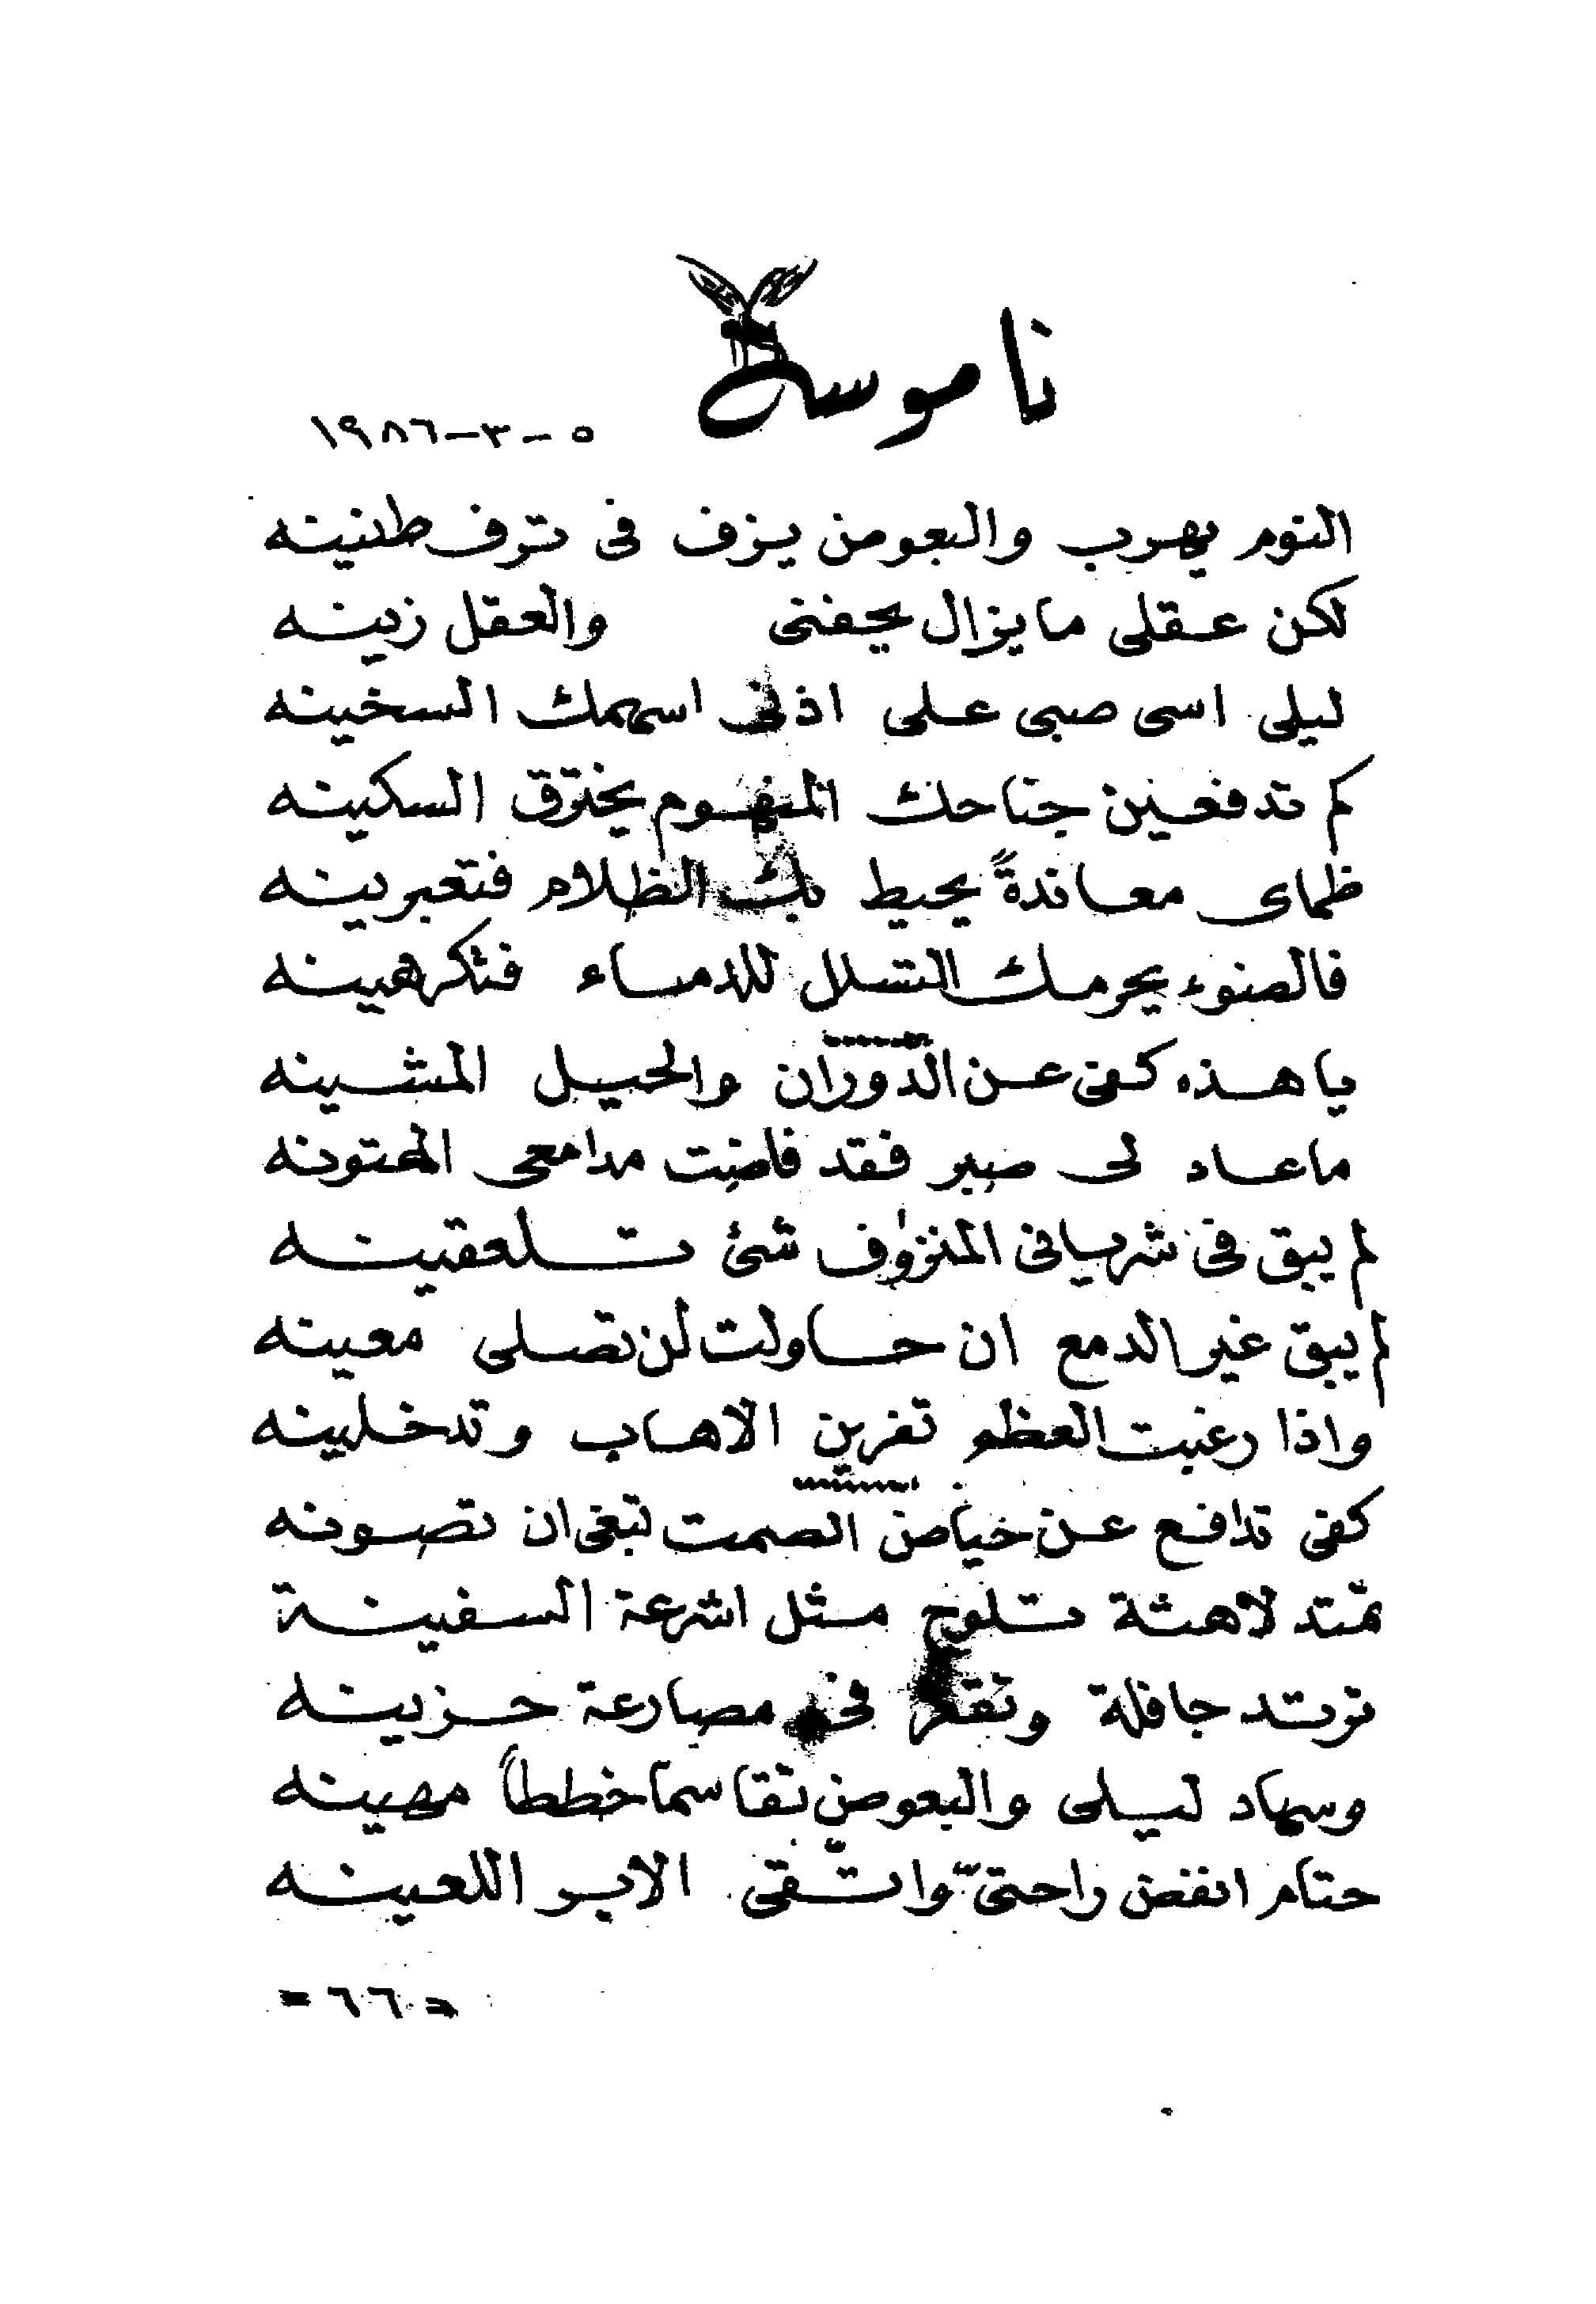 ناموسة
٥-٣-١٩٨٦
النوم يهرب والبعوض يزف فى ترف طنينه
لكن عقلى مايزال بجفنى والعقل زينه
ليلى اسى صبى على اذنى اسهمك السخينه
كم تدفعين جناحك المنهوم يخترق السكينه
ظماى معاندةً يحيط بك الظلام فتعبرينه
فالضوء يحرمك التسلل للدماء فتكرهينه
ياهذه كفى عن الدّوران والحيل المشينه
ماعاد لى صبر فقد فاضت مدامعى الهتونه
لم يبق فى شريانى المنزوف شئ تلعقينه
لم يبق غير الدمع ان حاولت لن تصلى معينه
واذا رغبت العظم تفرين الاهاب وتدخلينه
كفى تدافع عن حياض الصمت تبغى ان تصونه
تمتد لاهثة تلوح مثل اشرعة السفينة
ترتد جافلة فى مصارعة حزينه
وسهاد ليلى والبعوض تقاسما خططاً مهينه
حتام انفض راحتىّ واتّقى الابر اللعينه
= ٦٦ =